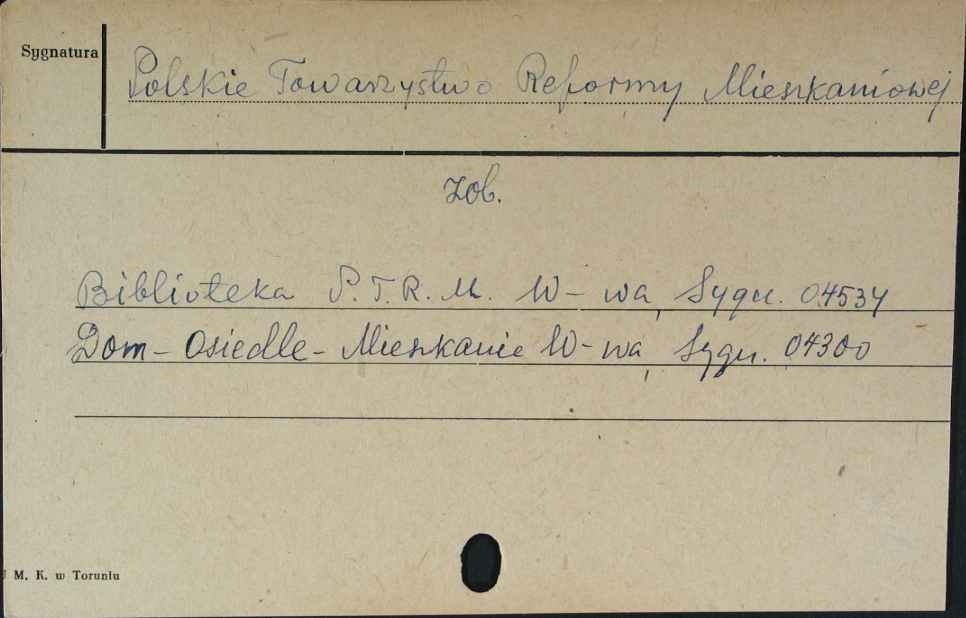 Sygnatura
Polskie Towarzystwo Reformy Mieszkaniowej
zob.
Biblioteka P.T.R.M. W-wa, Sygn. 04534
Dom-Osiedle-Mieszkanie W-wa, Sygn. 04300
M. K. w Toruniu